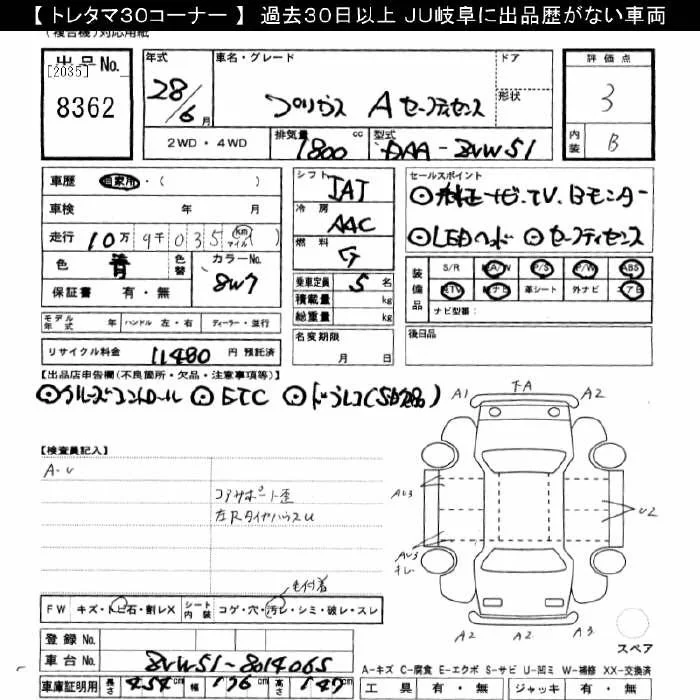 【 トレタマ30コーナー 】 過去30日以上 JU岐阜に出品歴がない車両
(複合機)対応用紙
出品No.
[2035]
8362
年式
28/6月
車名・グレード
プリウス A セーフティセンス
ドア
形状
評価点
3
内装
B
2WD・4WD
排気量
1800 cc
型式
DAA-ZVW51
車歴 自家用・( )
車検 年 月
走行 10万9千035 km マイル( )
色 青 色替 カラーNo. 8W7
保証書 有・無
シフト IAT
冷房 AAC
燃料 G
乗車定員 5名
積載量 kg
総重量 kg
セールスポイント
⊙純正ナビ.TV.Bモニター
⊙LEDヘッド ⊙セーフティセンス
装備品
S/R A/W P/S P/W ABS
ATV 純ナビ 革シート 外ナビ エアB
ナビ型番:
モデル年式 年 ハンドル 左・右 ディーラー・並行
リサイクル料金 11480 円 預託済
名変期限
月 日
後日品
【出品店申告欄(不良箇所・欠品・注意事項等)】
⊙クルーズコントロール ⊙ETC ⊙ドラレコ(
【検査員記入】
A-U
コアサポート歪
左Rタイヤハウスu
毛付着
FW キズ・トビ石・割レX シート内装 コゲ・穴・汚レ・シミ・破レ・スレ
A1 下A A2
AU3
U2
AU3
A2 A2 A3
スペア
登録No.
車台No. ZVW51-8014065
車庫証明用 長さ 454cm 幅 176cm 高さ 147cm
A-キズ C-腐食 E-エクボ S-サビ U-凹ミ W-補修 XX-交換済
工具 有・無 ジャッキ 有・無